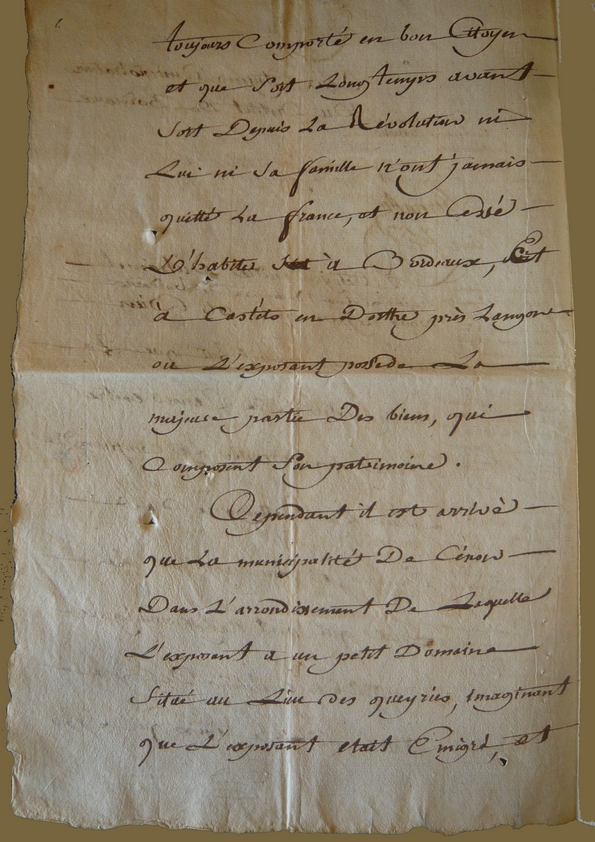 toujours Comporté en bon Citoyen
et que soit Longtemps avant
soit Depuis La Révolution ni
Lui ni sa famille n'ont jamais
quitté La france, et non Cessé
D'habiter à Bordeaux, Et
à Castets en Dorthe près Langon
ou L'exposant possede La
majeure partie Des biens, qui
Composent son patrimoine.
Cependant il est arrivé
que La municipalité De Cenon
Dans L'arrondissement De Lequelle
L'exposant a un petit Domaine
situé au Lieu des queyries, imaginant
que L'exposant etait Emigré, et